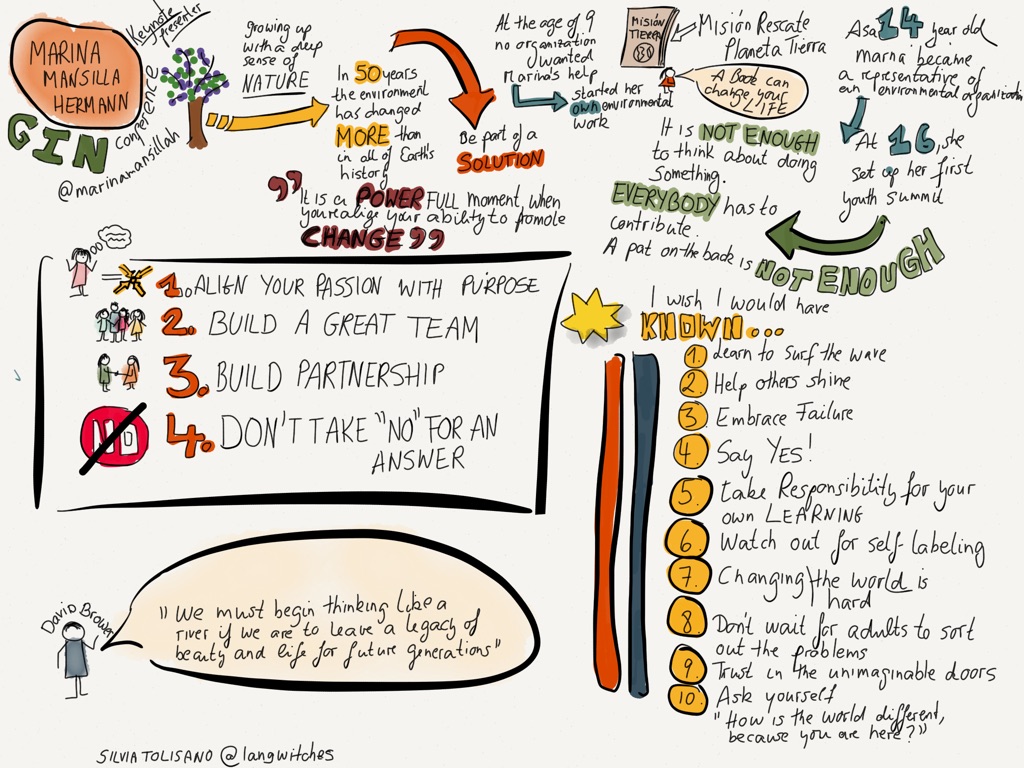 MARINA
MANSILLA
HERMANN
Keynote
presenter
GIN
conference
@marinamansillah
growing up
with a deep
sense of
NATURE
In 50 years
the environment
has changed
MORE than
in all of Earth's
history
Be part of a
SOLUTION
"It is a POWERFULL moment, when
you realize your ability to promote
CHANGE"
At the age of 9
no organization
wanted
Marina's help
started her
own environmental
work
MISIÓN
TIERRA
Misión Rescate
Planeta Tierra
A Book can
change your
LIFE
As a 14 year old
marina became
a representative of
an environmental organization
At 16, she
set up her first
youth summit
It is NOT ENOUGH
to think about doing
something.
EVERYBODY has to
contribute.
A pat on the back is NOT ENOUGH
1. ALIGN YOUR PASSION WITH PURPOSE
2. BUILD A GREAT TEAM
3. BUILD PARTNERSHIP
NO
4. DON'T TAKE "NO" FOR AN
ANSWER
I wish I would have
KNOWN...
1. Learn to surf the wave
2. Help others shine
3. Embrace Failure
4. Say YES!
5. take Responsibility for your
own LEARNING
6. Watch out for self-labeling
7. Changing the world is
hard
8. Don't wait for adults to sort
out the problems
9. Trust in the unimaginable doors
10. Ask yourself
"How is the world different,
because you are here?"
David Brower
"We must begin thinking like a
river if we are to leave a legacy of
beauty and life for future generations"
SILVIA TOLISANO @langwitches